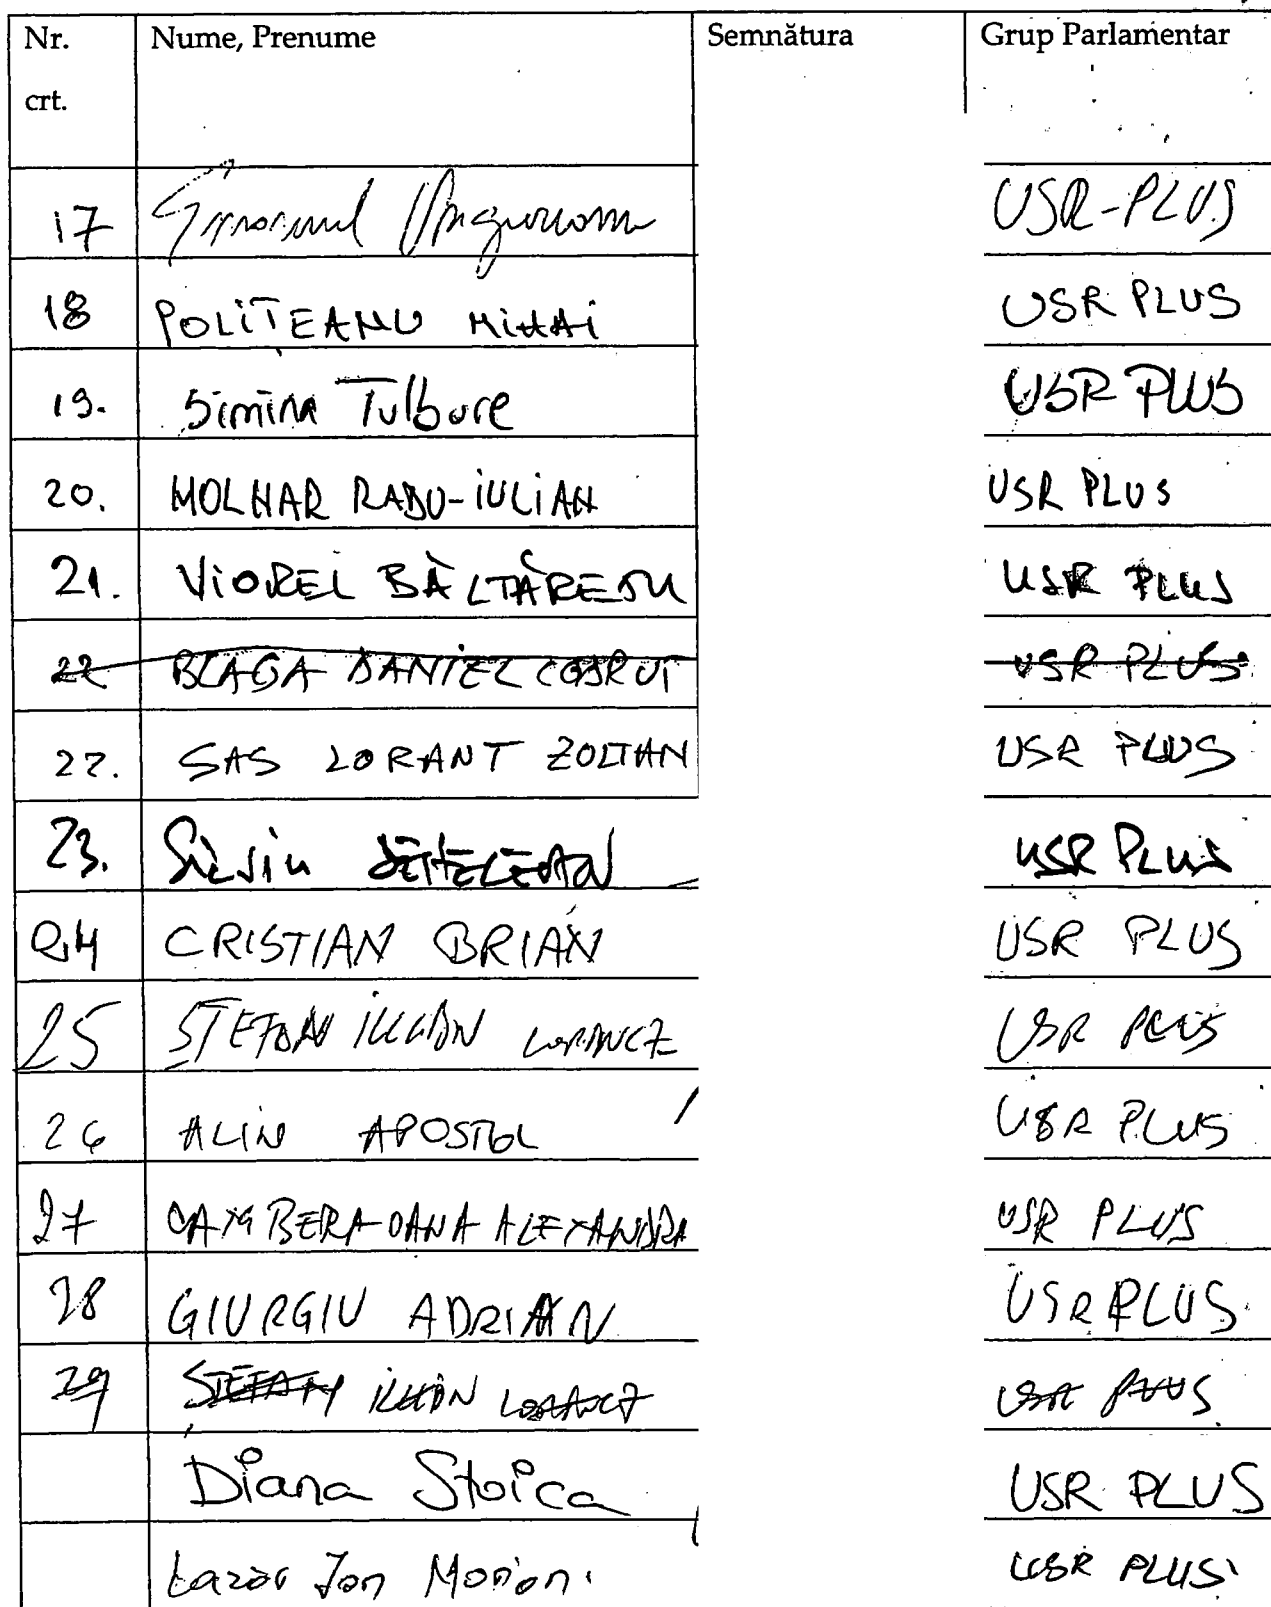 Nr. crt. Nume, Prenume Semnătura Grup Parlamentar
17 Emanuel Ungureanu USR-PLUS
18 POLITEANU MIHAI USR PLUS
19. Simina Tulbure USR PLUS
20. MOLNAR RADU-IULIAN USR PLUS
21. VIOREL BĂLTĂREȚU USR PLUS
22 BLAGA DANIEL CODRUT USR PLUS
22. SAS LORANT ZOLTAN USR PLUS
23. Silviu DEHELEAN USR PLUS
24 CRISTIAN BRIAN USR PLUS
25 STEFAN IULIAN LORINCZ USR PLUS
26 ALIN APOSTOL USR PLUS
27 CAMBERA OANA ALEXANDRA USR PLUS
28 GIURGIU ADRIAN USR PLUS
29 STEFAN IULIAN LORINCZ USR PLUS
Diana Stoica USR PLUS
Lazăr Ion Marian USR PLUS